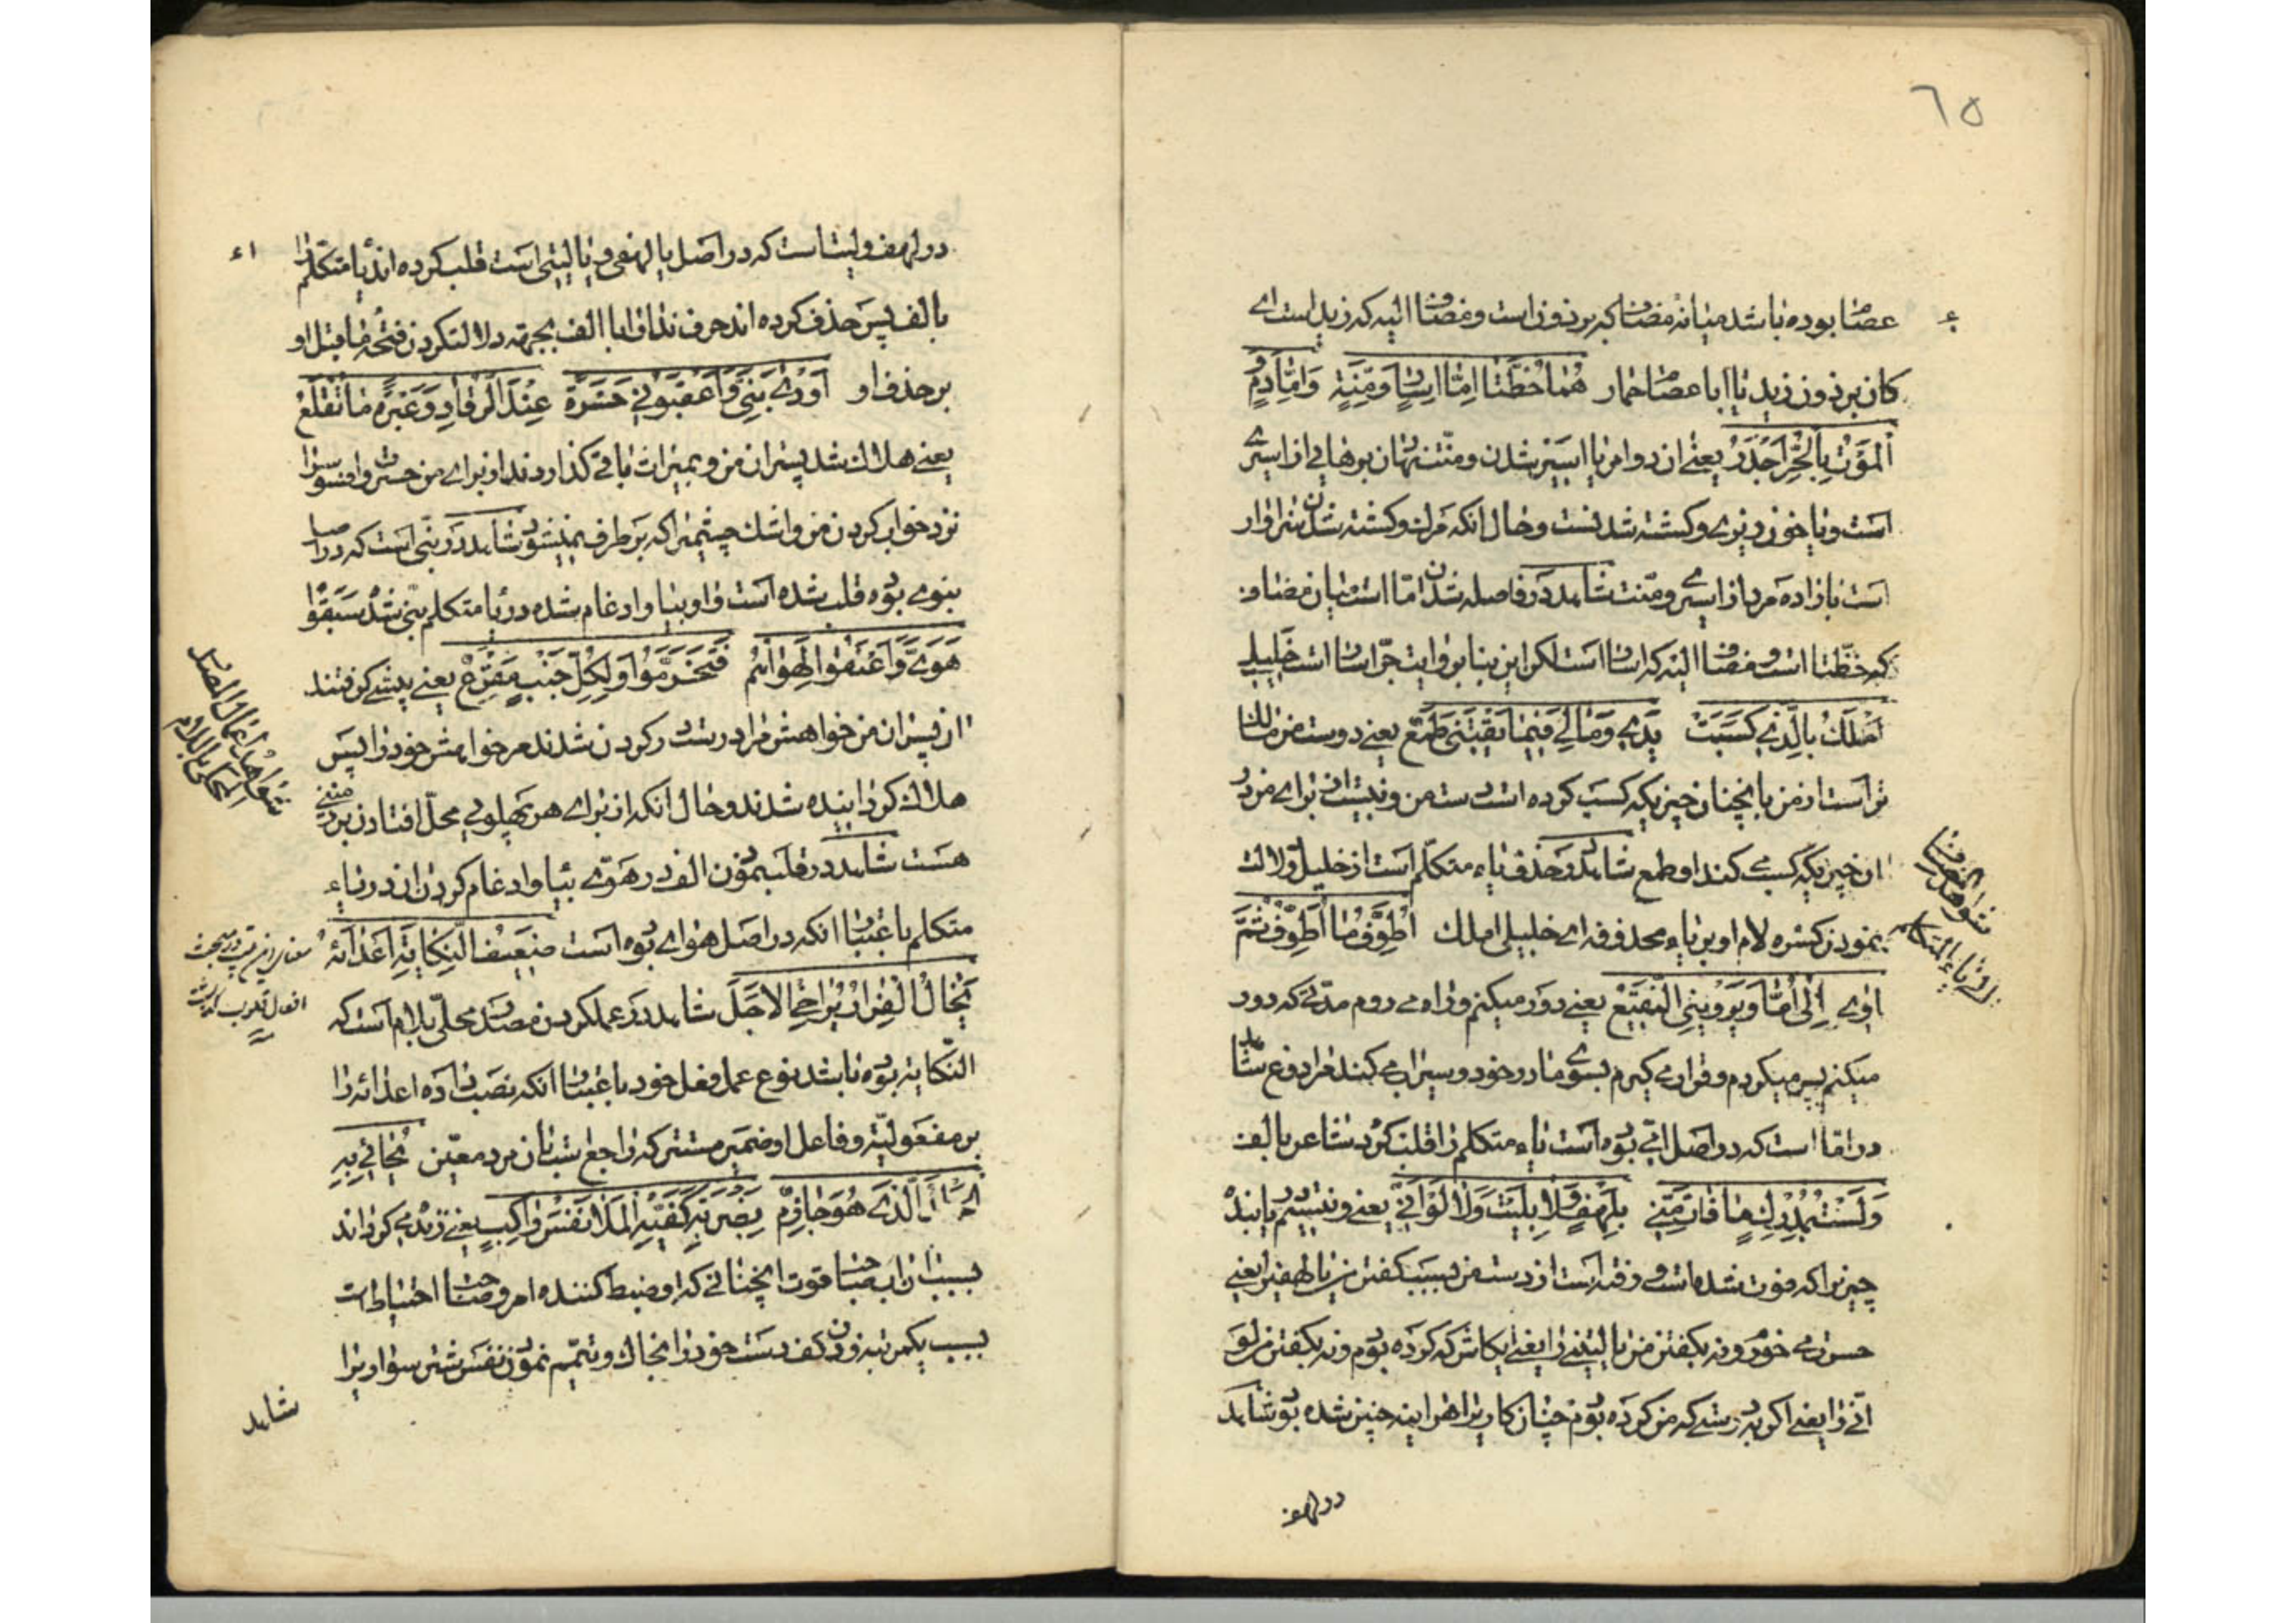 ٦٥
عصام بوده باشد میانه مضاف که برذون است و مضاف الیه که زید است ای
کان برذون زید یا ابا عصام حمار هُما خُطَّتا اِمّا اِسارٍ وَمِنَّةٍ وَاِمّا دَمٍ
اَلمَوْتُ بِالحُرِّ اَجْدَرُ یعنی ان دو امر یا اسیر شدن و منت نهادن برهایی از اسیری
است و یا خون ریزی و کشته شدنست و حال آنکه مرک و کشته شدن سزاوار
است بازاده مرد از اسیری و منت شاهد در فاصله شدن امّا است میان مضاف
که خطّتا است و مضاف الیه که اسار است لکن این بنا بر روایت جرّ اسار است خَلیلِ
اَمْلَكُ بِالَّذی کَسَبَتْ یَدی وَمالی فیما یَقْتَنی طَمَعٌ یعنی دوست من مالک
تر است از من بانچنان چیزیکه کسب کرده است دست من و نیست از برای من در
ان چیزیکه کسب می کند او طمع شاهد در حذف یاء متکلم است از خلیل و دلالت
نمودن کسره لام او بر یاء محذوفه ای خلیلی املک اُطَوِّفُ ما اُطَوِّفُ ثُمَّ
اٰوی اِلی اُمّا وَیُرْوینی النَّقیعُ یعنی دور میکنم و راه می روم مدتی که دور
میکنم پس میکردم و قرار می کیرم بسوی مادر خود و سیراب می کند مرا دوغ شاهد
در امّا است که در اصل امّی بوده است یاء متکلم را قلب کرد شاعر بالف
وَلَسْتُ بِمُدْرِكٍ ما فاتَ مِنّی بِلَهْفَ وَلا بِلَیْتَ وَلا لَوَ انّی یعنی و نیستم یابنده
چیزیرا که فوت شده است و رفته است از دست من بسبب کفتن من یا لهفیرا یعنی
حسرت می خورم و نه بکفتن من یا لیتنی را یعنی یکاش که کرده بودم و نه بکفتن من لو
انّی را یعنی اکر بدرستی که من کرده بودم چنان کاریرا هراینه چنین شده بود شاهد
در لهف
شواهد المضاف
الی یاء المتکلم
در لهف و لیت است که در اصل یا لهفی و یا لیتی است قلب کرده اند یا متکلم را
بالف پس حذف کرده اند حرف ندا را با الف بجهته دلالت کردن فتحه ماقبل او
بر حذف او اَوْدی بَنِیَّ وَاَعْقَبُونی حَسْرَةً عِنْدَ الرُّقادِ وَعَبْرَةً ما تُقْلِعُ
یعنی هلاک شد پسران من و بمیراث باقی کذاردند از برای من حسرت و افسوسرا
نزد خواب کردن من و اشک چشمیرا که برطرف نمیشود شاهد در بنیّ است که در اصل
بنوی بوده قلب شده است واو بیا و ادغام شده در یا متکلم بنیّ شد سَبَقُوا
هَوَیَّ وَاَعْنَقُوا لِهَواهُمُ فَتُخُرِّمُوا وَلِکُلِّ جَنْبٍ مَصْرَعُ یعنی پیشی کرفتند
ان پسران من خواهش مرا در
هلاک کردانیده شدند و حال آنکه از برای هر پهلویی محلّ افتادن بر زمینی
هست شاهد در قلب نمودن الف در هَوَیَّ بیا و ادغام کردن ان در یاء
متکلم باعتبار آنکه در اصل هوای بوده است ضَعیفُ النِّکایَةِ اَعْداءَهُ
یَخالُ الْفِرارَ یُراخی الاَجَلَ شاهد در عمل کردن مصدر محلّی بلام است که
النّکایة بوده باشد نوع عمل فعل خود باعتبار آنکه نصب داده اعدائه را
بر مفعولیّة و فاعل او ضمیر مستتر که راجع شد بان مرد معیّن یُحایی بِهِ
الَّذی هُوَ حازِمٌ بِضَرْبَةِ کَفَّیْهِ المَلا نَفْسَ راکِبٍ یعنی زنده می کرداند
بسبب ان اب صاحب قوت آنچنانی که او ضبط کننده امر و صاحب احتیاط است
بسبب یکمرتبه زدن کف دست خود را بخاک و تیمّم نمودن نفس شتر سواریرا
شاهد
شواهد اعمال المصدر
المحلّی باللام